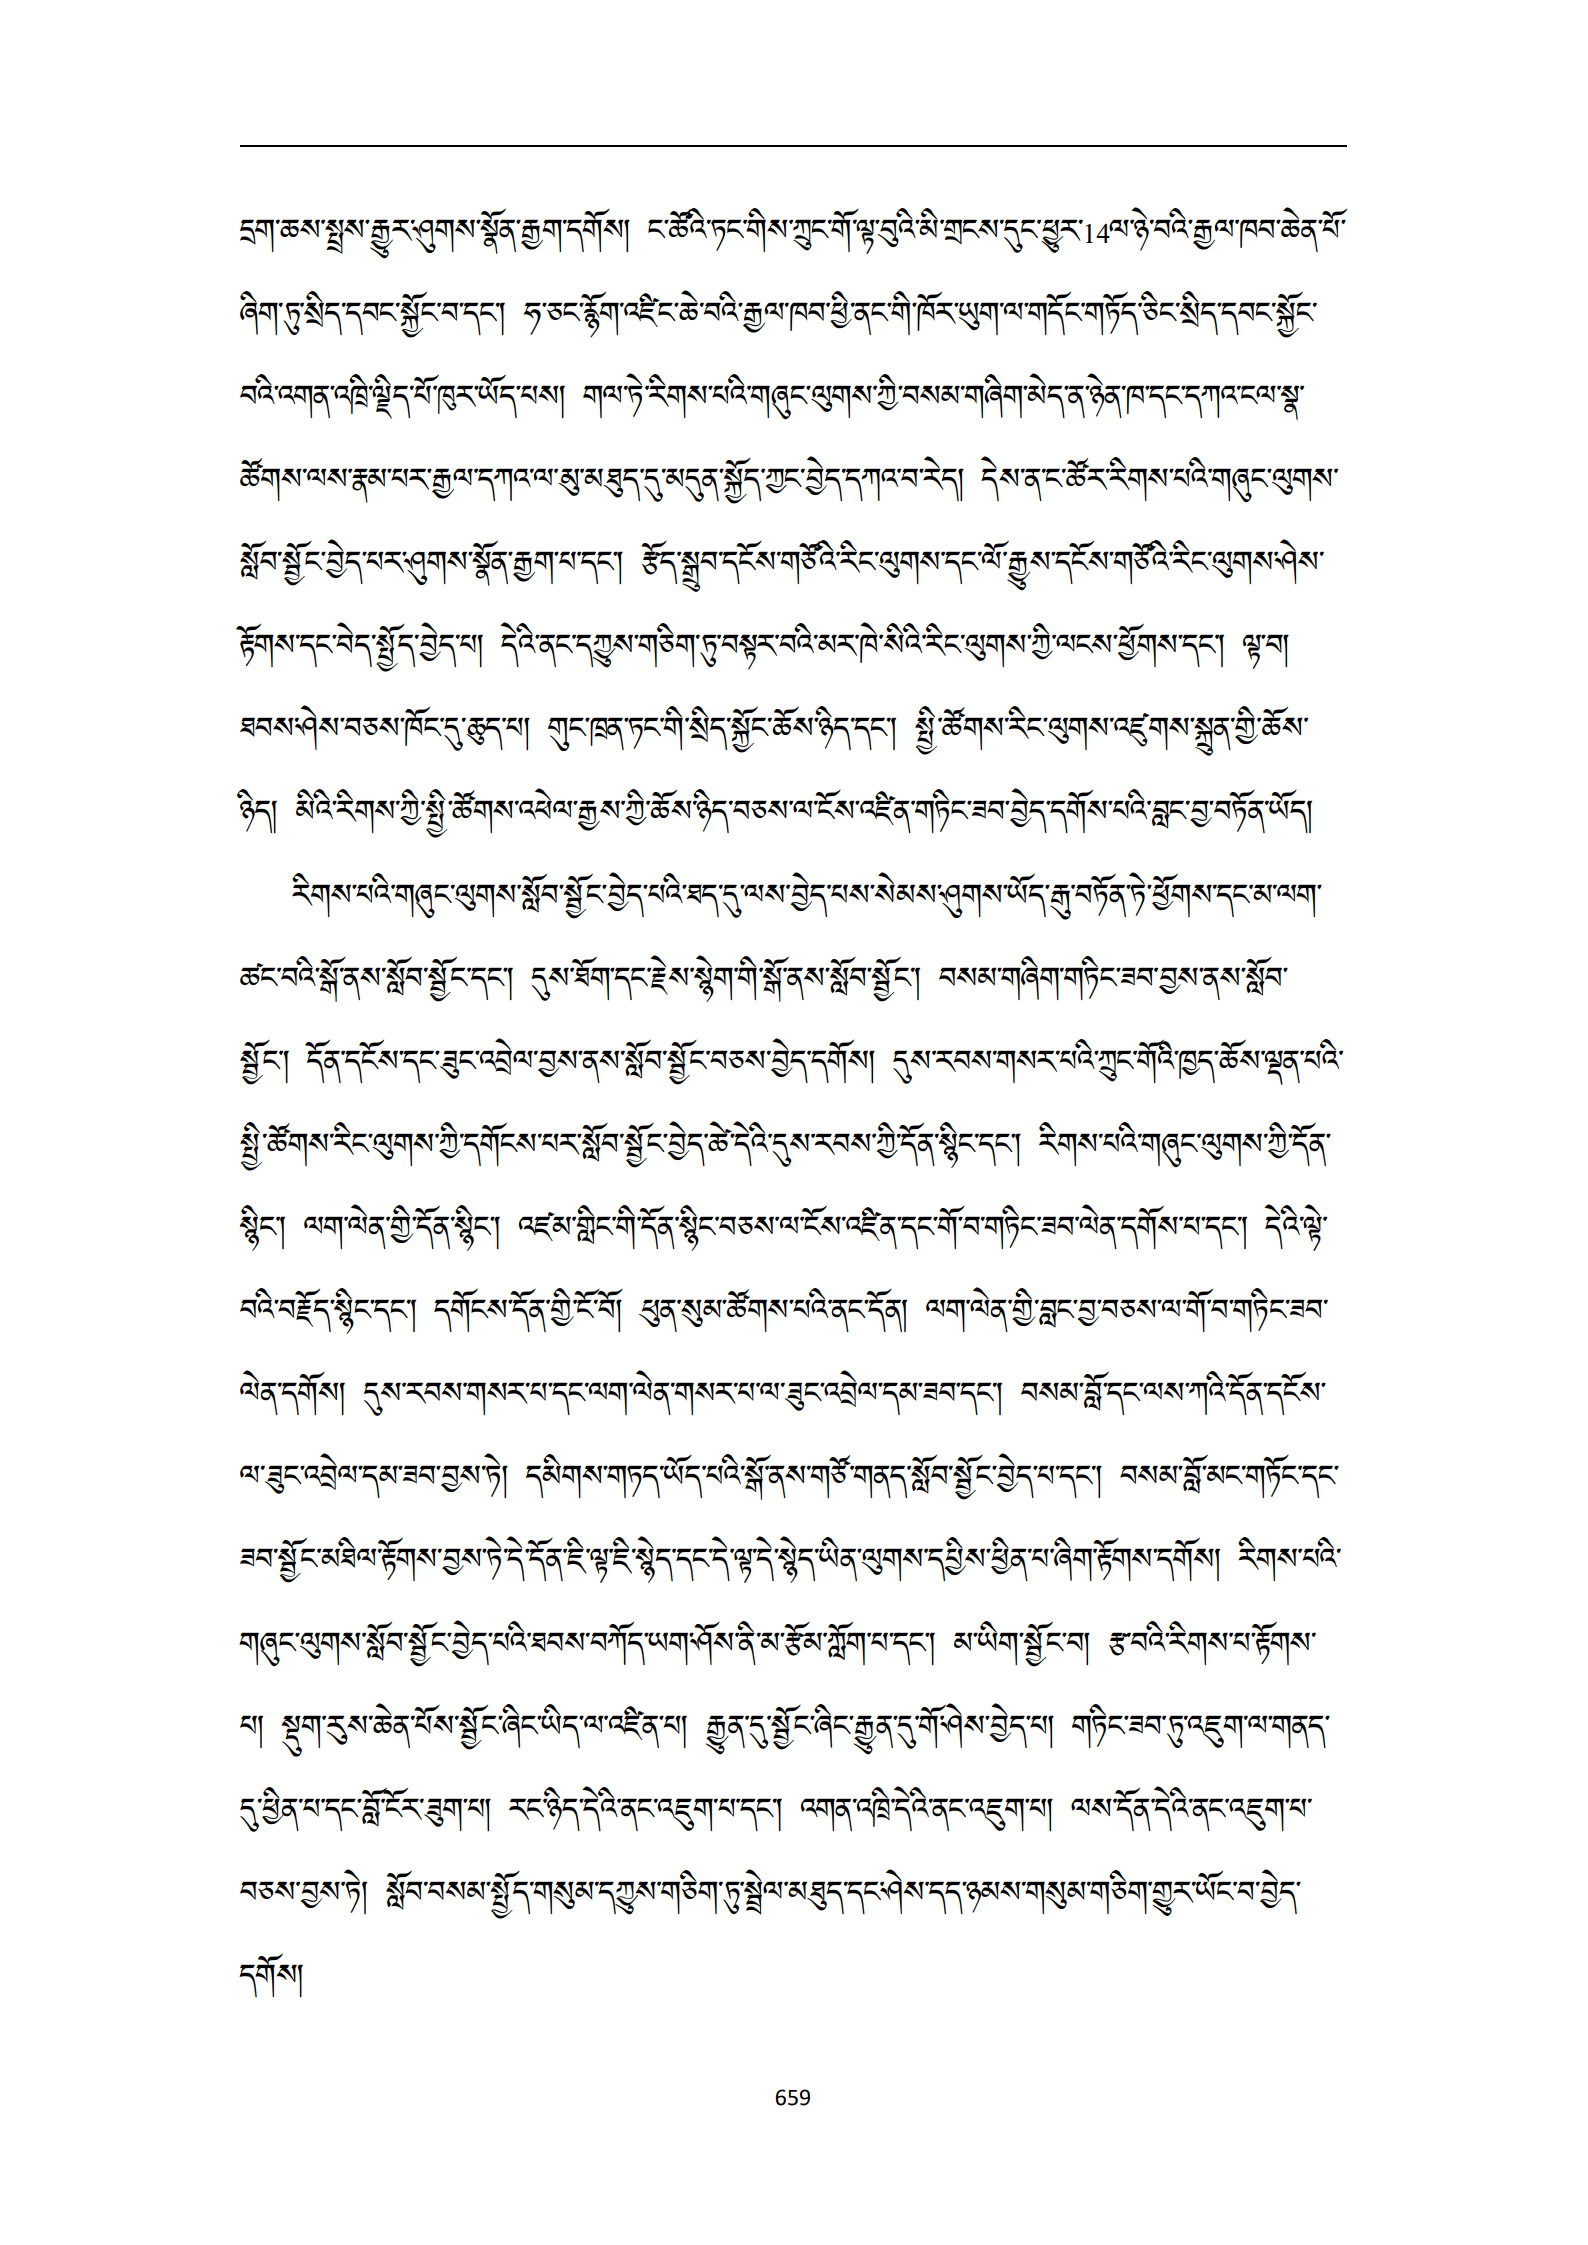 དྲག་ཆས་སྤྲས་རྒྱུར་ཤུགས་སྣོན་རྒྱག་དགོས། ང་ཚོའི་ཏང་གིས་ཀྲུང་གོ་ལྟ་བུའི་མི་གྲངས་དུང་ཕྱུར་14ལ་ཉེ་བའི་རྒྱལ་ཁབ་ཆེན་པོ་
ཞིག་ཏུ་སྲིད་དབང་སྐྱོང་བ་དང༌། ཧ་ཅང་རྙོག་འཛིང་ཆེ་བའི་རྒྱལ་ཁབ་ཕྱི་ནང་གི་ཁོར་ཡུག་ལ་གདོང་གཏོད་ཅིང་སྲིད་དབང་སྐྱོང་
བའི་འགན་འཁྲི་ལྗིད་པོ་ཁུར་ཡོད་པས། གལ་ཏེ་རིགས་པའི་གཞུང་ལུགས་ཀྱི་བསམ་གཞིག་མེད་ན་ཉེན་ཁ་དང་དཀའ་ངལ་སྣ་
ཚོགས་ལས་རྣམ་པར་རྒྱལ་དཀའ་ལ་མུ་མཐུད་དུ་མདུན་སྐྱོད་ཀྱང་བྱེད་དཀའ་བ་རེད། དེས་ན་ང་ཚོར་རིགས་པའི་གཞུང་ལུགས་
སློབ་སྦྱོང་བྱེད་པར་ཤུགས་སྣོན་རྒྱག་པ་དང༌། རྩོད་སྒྲུབ་དངོས་གཙོའི་རིང་ལུགས་དང་ལོ་རྒྱུས་དངོས་གཙོའི་རིང་ལུགས་ཤེས་
རྟོགས་དང་བེད་སྤྱོད་བྱེད་པ། དེའི་ནང་དཀྱུས་གཅིག་ཏུ་བསྟར་བའི་མར་ཁེ་སིའི་རིང་ལུགས་ཀྱི་ལངས་ཕྱོགས་དང༌། ལྟ་བ།
ཐབས་ཤེས་བཅས་ཁོང་དུ་ཆུད་པ། གུང་ཁྲན་ཏང་གི་སྲིད་སྐྱོང་ཆོས་ཉིད་དང༌། སྤྱི་ཚོགས་རིང་ལུགས་འཛུགས་སྐྲུན་གྱི་ཆོས་
ཉིད། མིའི་རིགས་ཀྱི་སྤྱི་ཚོགས་འཕེལ་རྒྱས་ཀྱི་ཆོས་ཉིད་བཅས་ལ་ངོས་འཛིན་གཏིང་ཟབ་བྱེད་དགོས་པའི་བླང་བྱ་བཏོན་ཡོད།
རིགས་པའི་གཞུང་ལུགས་སློབ་སྦྱོང་བྱེད་པའི་ཐད་དུ་ལས་བྱེད་པས་སེམས་ཤུགས་ཡོད་རྒུ་བཏོན་ཏེ་ཕྱོགས་དང་མ་ལག་
ཚང་བའི་སྒོ་ནས་སློབ་སྦྱོང་དང༌། དུས་ཐོག་དང་རྗེས་སྙེག་གི་སྒོ་ནས་སློབ་སྦྱོང༌། བསམ་གཞིག་གཏིང་ཟབ་བྱས་ནས་སློབ་
སྦྱོང༌། དོན་དངོས་དང་ཟུང་འབྲེལ་བྱས་ནས་སློབ་སྦྱོང་བཅས་བྱེད་དགོས། དུས་རབས་གསར་པའི་ཀྲུང་གོའི་ཁྱད་ཆོས་ལྡན་པའི་
སྤྱི་ཚོགས་རིང་ལུགས་ཀྱི་དགོངས་པར་སློབ་སྦྱོང་བྱེད་ཚེ་དེའི་དུས་རབས་ཀྱི་དོན་སྙིང་དང༌། རིགས་པའི་གཞུང་ལུགས་ཀྱི་དོན་
སྙིང༌། ལག་ལེན་གྱི་དོན་སྙིང༌། འཛམ་གླིང་གི་དོན་སྙིང་བཅས་ལ་ངོས་འཛིན་དང་གོ་བ་གཏིང་ཟབ་ལེན་དགོས་པ་དང༌། དེའི་ལྟེ་
བའི་བརྗོད་སྙིང་དང༌། དགོངས་དོན་གྱི་ངོ་བོ། ཕུན་སུམ་ཚོགས་པའི་ནང་དོན། ལག་ལེན་གྱི་བླང་བྱ་བཅས་ལ་གོ་བ་གཏིང་ཟབ་
ལེན་དགོས། དུས་རབས་གསར་པ་དང་ལག་ལེན་གསར་པ་ལ་ཟུང་འབྲེལ་དམ་ཟབ་དང༌། བསམ་བློ་དང་ལས་ཀའི་དོན་དངོས་
ལ་ཟུང་འབྲེལ་དམ་ཟབ་བྱས་ཏེ། དམིགས་གཏད་ཡོད་པའི་སྒོ་ནས་གཙོ་གནད་སློབ་སྦྱོང་བྱེད་པ་དང༌། བསམ་བློ་མང་གཏོང་དང་
ཟབ་སྦྱོང་མཐིལ་རྟོགས་བྱས་ཏེ་དེ་དོན་ཇི་ལྟ་ཇི་སྙེད་དང་དེ་ལྟ་དེ་སྙེད་ཡིན་ལུགས་དབྱིས་ཕྱིན་པ་ཞིག་རྟོགས་དགོས། རིགས་པའི་
གཞུང་ལུགས་སློབ་སྦྱོང་བྱེད་པའི་ཐབས་བཀོད་ཡག་ཤོས་ནི་མ་རྩོམ་ཀློག་པ་དང༌། མ་ཡིག་སྦྱོང་བ། རྩ་བའི་རིགས་པ་རྟོགས་
པ། སྡུག་རུས་ཆེན་པོས་སྦྱོང་ཞིང་ཡིད་ལ་འཛིན་པ། རྒྱུན་དུ་སྦྱོང་ཞིང་རྒྱུན་དུ་གོ་ཤེས་བྱེད་པ། གཏིང་ཟབ་ཏུ་འཇུག་ལ་གནད་
དུ་ཕྱིན་པ་དང་བློ་ངོར་ཟུག་པ། རང་ཉིད་དེའི་ནང་འཇུག་པ་དང༌། འགན་འཁྲི་དེའི་ནང་འཇུག་པ། ལས་དོན་དེའི་ནང་འཇུག་པ་
བཅས་བྱས་ཏེ། སློབ་བསམ་སྤྱོད་གསུམ་དཀྱུས་གཅིག་ཏུ་སྦྲེལ་མཐུད་དང་ཤེས་དད་ཉམས་གསུམ་གཅིག་གྱུར་ཡོང་བ་བྱེད་
དགོས།
659